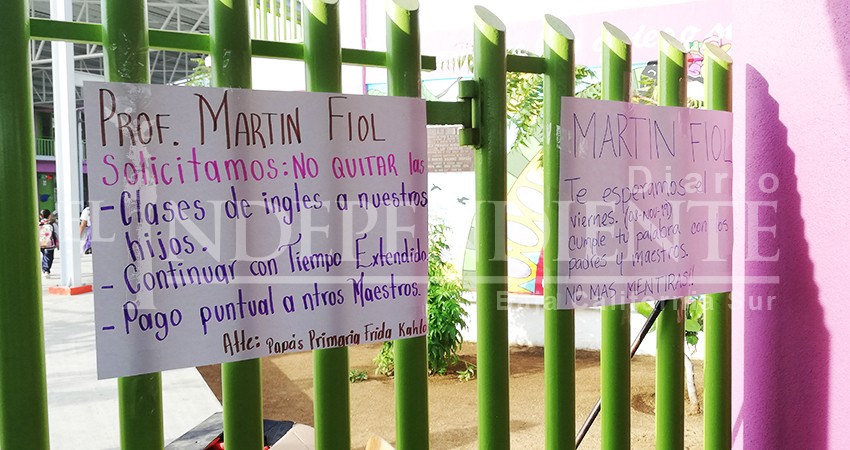 PROF. MARTIN FIOL
Solicitamos: NO QUITAR las
- Clases de ingles a nuestros
hijos.
- Continuar con Tiempo Extendido
- Pago puntual a ntros Maestros.
Atte: Papás Primaria Frida Kahlo
MARTIN FIOL
Te esperamos el
viernes.
cumple tu palabra con los
padres y maestros.
NO MAS MENTIRAS!!
Diario
EL INDEPENDIENTE
Baja California Sur